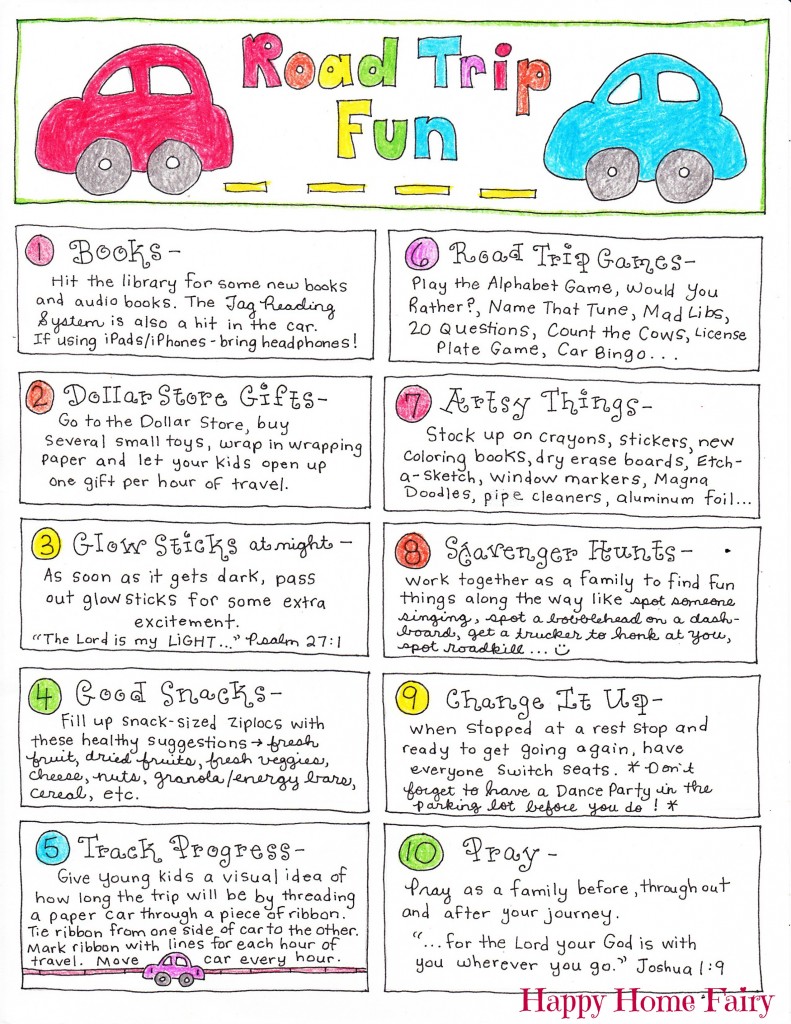 Road Trip
Fun
1 Books-
Hit the library for some new books
and audio books. The Tag Reading
System is also a hit in the car.
If using iPads/iPhones - bring headphones!
2 Dollar Store Gifts-
Go to the Dollar Store, buy
several small toys, wrap in wrapping
paper and let your kids open up
one gift per hour of travel.
3 Glow Sticks at night-
As soon as it gets dark, pass
out glowsticks for some extra
excitement.
"The Lord is my LIGHT..." Psalm 27:1
4 Good Snacks-
Fill up snack-sized ziplocs with
these healthy suggestions → fresh
fruit, dried fruits, fresh veggies,
cheese, nuts, granola/energy bars,
cereal, etc.
5 Track Progress-
Give young kids a visual idea of
how long the trip will be by threading
a paper car through a piece of ribbon.
Tie ribbon from one side of car to the other.
Mark ribbon with lines for each hour of
travel. Move car every hour.
6 Road Trip Games-
Play the Alphabet Game, Would You
Rather?, Name That Tune, Mad Libs,
20 Questions, Count the Cows, License
Plate Game, Car Bingo...
7 Artsy Things-
Stock up on crayons, stickers, new
coloring books, dry erase boards, Etch-
a-Sketch, window markers, Magna
Doodles, pipe cleaners, aluminum foil...
8 Scavenger Hunts-
Work together as a family to find fun
things along the way like spot someone
singing, spot a bobblehead on a dash-
board, get a trucker to honk at you,
spot roadkill... ☺
9 Change It Up-
When stopped at a rest stop and
ready to get going again, have
everyone switch seats. *Don't
forget to have a Dance Party in the
parking lot before you do! *
10 Pray-
Pray as a family before, throughout
and after your journey.
"...for the Lord your God is with
you wherever you go." Joshua 1:9
Happy Home Fairy